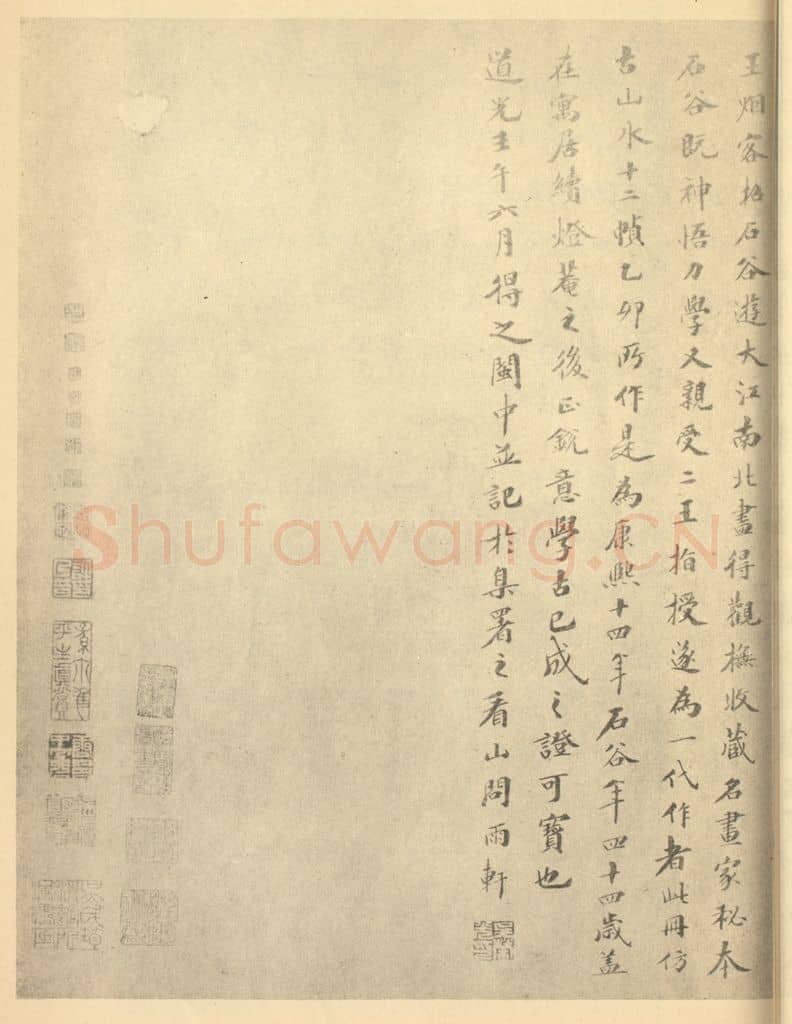 王烟客招石谷遊大江南北盡得觀撫收藏名畫家秘本
石谷既神悟力學又親受二王指授遂為一代作者此冊仿
古山水十二幀乙卯所作是為康熙十四年石谷年四十四歲蓋
在寓居續燈菴之後正銳意學古已成之證可寶也
道光壬午六月得之閩中並記於臬署之看山問雨軒
Shufawang.CN